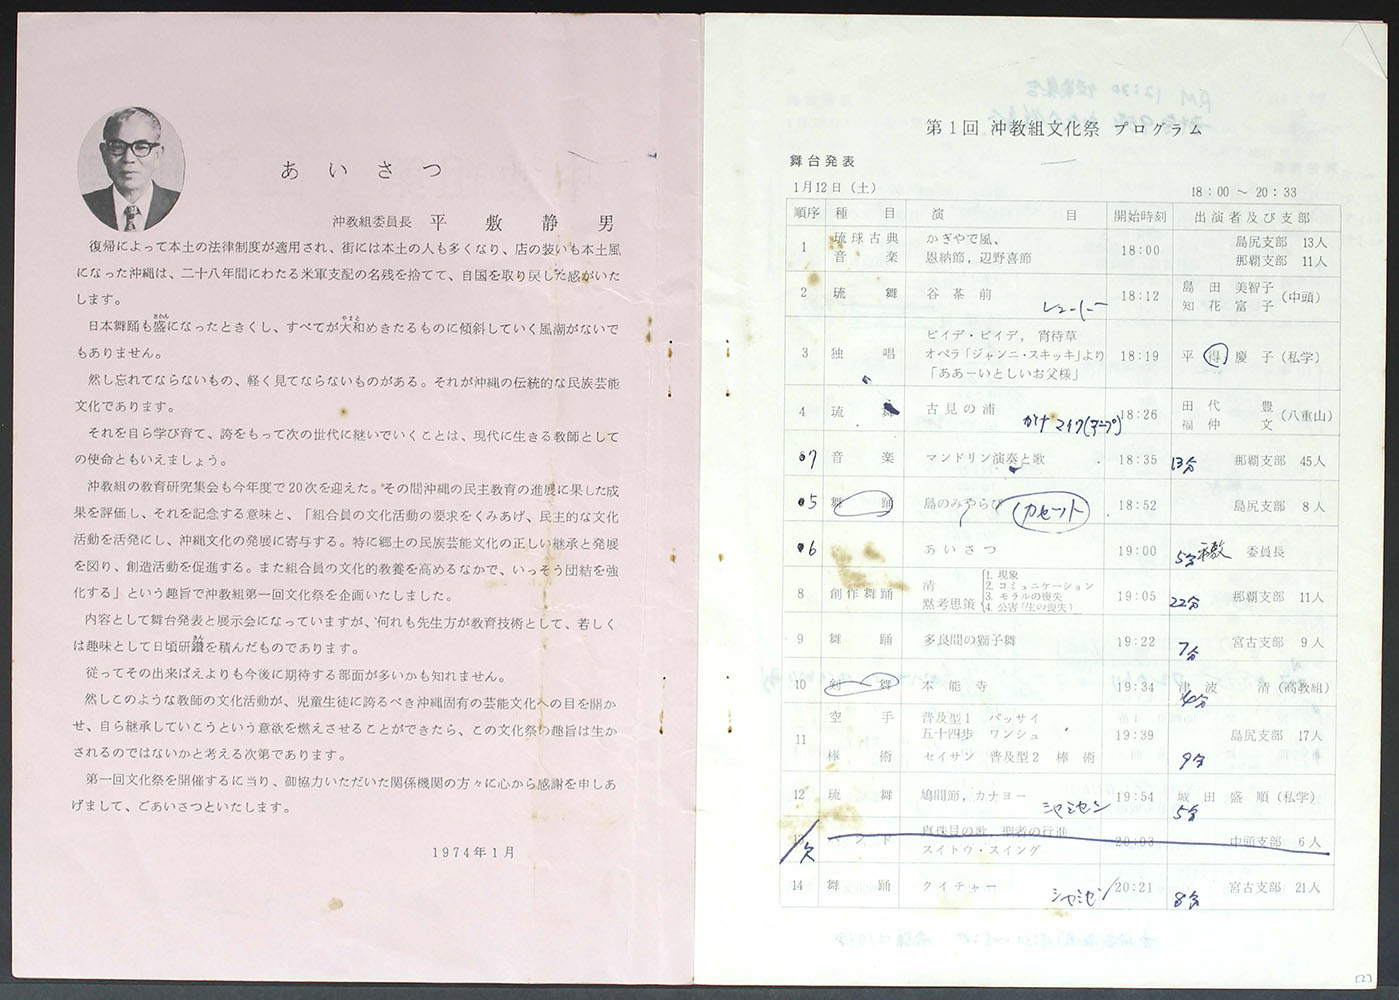 あいさつ
沖教組委員長 平敷静男
復帰によって本土の法律制度が適用され、街には本土の人も多くなり、店の装いも本土風
になった沖縄は、二十八年間にわたる米軍支配の名残を捨てて、自国を取り戻した感がいた
します。
日本舞踊も盛になったときくし、すべてが大和めきたるものに傾斜していく風潮がないで
もありません。
然し忘れてならないもの、軽く見てならないものがある。それが沖縄の伝統的な民族芸能
文化であります。
それを自ら学び育て、誇をもって次の世代に継いでいくことは、現代に生きる教師として
の使命ともいえましょう。
沖教組の教育研究集会も今年度で20次を迎えた。その間沖縄の民主教育の進展に果した成
果を評価し、それを記念する意味と、「組合員の文化活動の要求をくみあげ、民主的な文化
活動を活発にし、沖縄文化の発展に寄与する。特に郷土の民族芸能文化の正しい継承と発展
を図り、創造活動を促進する。また組合員の文化的教養を高めるなかで、いっそう団結を強
化する」という趣旨で沖教組第一回文化祭を企画いたしました。
内容として舞台発表と展示会になっていますが、何れも先生方が教育技術として、若しく
は趣味として日頃研鑽を積んだものであります。
従ってその出来ばえよりも今後に期待する部面が多いかも知れません。
然しこのような教師の文化活動が、児童生徒に誇るべき沖縄固有の芸能文化への目を開か
せ、自ら継承していこうという意欲を燃えさせることができたら、この文化祭の趣旨は生か
されるのではないかと考える次第であります。
第一回文化祭を開催するに当り、御協力いただいた関係機関の方々に心から感謝を申しあ
げまして、ごあいさつといたします。
1974年1月
第1回 沖教組文化祭 プログラム
舞台発表
1月12日(土) 18:00 〜 20:33
順序 種目 演目 開始時刻 出演者及び支部
1 琉球古典音楽 かぎやで風、恩納節, 辺野喜節 18:00 島尻支部 13人 那覇支部 11人
2 琉舞 谷茶前 レコード 18:12 島田美智子 知花富子 (中頭)
3 独唱 ビイデ・ビイデ, 宵待草 オペラ「ジャンニ・スキッキ」より「ああーいとしいお父様」 18:19 平得慶子(私学)
4 琉舞 古見の浦 18:26 田代豊 福仲文 (八重山)
7 音楽 マンドリン演奏と歌 18:35 13分 那覇支部 45人
5 舞踊 島のみやらび カセット 18:52 島尻支部 8人
6 あいさつ 19:00 5分 平敷 委員長
8 創作舞踊 清黙考思策 1. 現象 2. コミュニケーション 3. モラルの喪失 4. 公害(生の喪失) 19:05 22分 那覇支部 11人
9 舞踊 多良間の獅子舞 19:22 7分 宮古支部 9人
10 剣舞 本能寺 19:34 4分 津波清(高教組)
11 空手 棒術 普及型1 パッサイ 五十四歩 ワンシュ セイサン 普及型2 棒術 19:39 9分 島尻支部 17人
12 琉舞 鳩間節, カナヨー シャミセン 19:54 5分 城田盛順(私学)
13 バンド 真珠貝の歌, 聖者の行進 スイトウ・スイング 20:03 中頭支部 6人
欠
14 舞踊 クイチャー シャミセン 20:21 8分 宮古支部 21人
[2]